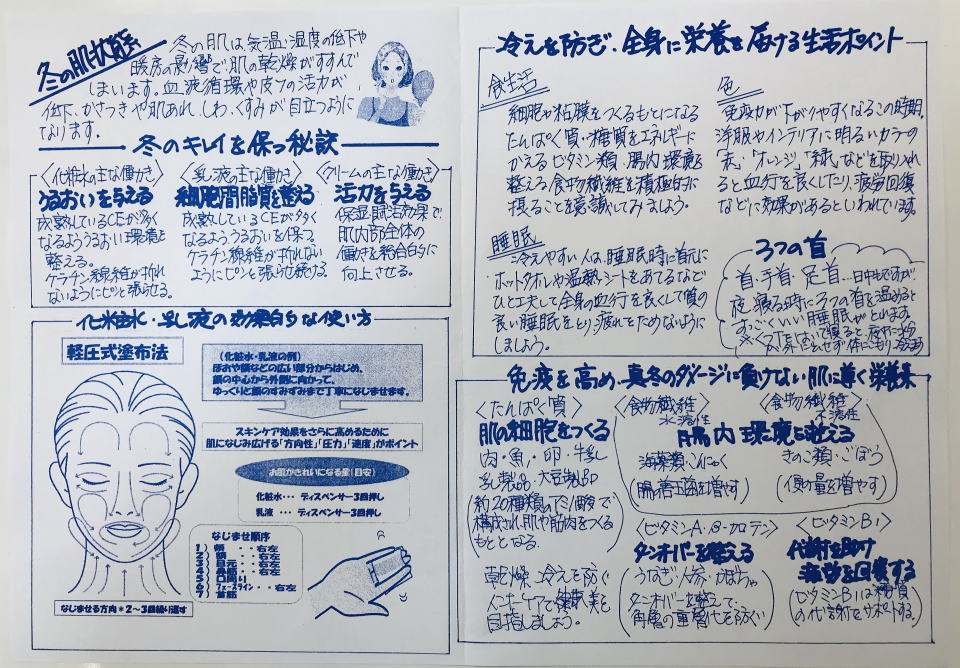 冬の肌状態
冬の肌は気温・湿度の低下や
暖房の影響で肌の乾燥がすすんで
しまいます。血液循環や皮フの活力が
低下、かさつきや肌あれ、しわ、くすみが目立つように
なります。
冬のキレイを保つ秘訣
〈化粧水の主な働き〉
うるおいを与える
成熟しているCEが多く
なるよううるおい環境を
整える。
ケラチン線維が折れ
ないようにピンと張らせる。
〈乳液の主な働き〉
細胞間脂質を整える
成熟しているCEが多く
なるよううるおいを保つ。
ケラチン線維が折れない
ようにピンと張らせ続ける。
〈クリームの主な働き〉
活力を与える
保湿・賦活効果で
肌内部全体の
働きを総合的に
向上させる。
化粧水・乳液の効果的な使い方
軽圧式塗布法
(化粧水・乳液の例)
ほおや額などの広い部分からはじめ、
顔の中心から外側に向かって、
ゆっくりと顔のすみずみまで丁寧になじませます。
スキンケア効果をさらに高めるために
肌になじみ広げる「方向性」「圧力」「速度」がポイント
お肌がきれいになる量(目安)
化粧水・・・ディスペンサー3回押し
乳液・・・ディスペンサー3回押し
なじませ順序
1)頬・・右左
2)額・・右左
3)目元・・右左
4)鼻筋・・右左
5)口周り
6)フェースライン・・右左
7)首筋
なじませる方向*2~3回繰り返す
冷えを防ぎ、全身に栄養を届ける生活ポイント
食生活
細胞や粘膜をつくるもとになる
たんぱく質・糖質をエネルギーに
かえるビタミン類、腸内環境を
整える食物繊維を積極的に
摂ることを意識してみましょう。
色
免疫力が下がりやすくなるこの時期。
洋服やインテリアに明るいカラーの
「赤」「オレンジ」「緑」などを取り入れ
ると血行を良くしたり、疲労回復
などに効果があるといわれています。
睡眠
冷えやすい人は、睡眠時に首元に
ホットタオルや温熱シートをあてるなど
ひと工夫して全身の血行を良くして質の
良い睡眠をとり、疲れをためないように
しましょう。
3つの首
首・手首・足首…日中もですが
夜、寝る時に3つの首を温めると
すごくいい睡眠がとれます。
免疫を高め、真冬のダメージに負けない肌に導く栄養素
〈たんぱく質〉
肌の細胞をつくる
肉・魚・卵・牛乳
乳製品・大豆製品
(約20種類のアミノ酸で
構成され、肌や筋肉をつくる
もととなる。)
〈食物繊維 水溶性〉
〈食物繊維 不溶性〉
腸内環境を整える
海藻類・こんにゃく
(腸善玉菌を増やす)
きのこ類・ごぼう
(便の量を増やす)
〈ビタミンA・β-カロテン〉
ターンオーバーを整える
うなぎ・人参・かぼちゃ
(ターンオーバーを整えて、
角層の重層化を防ぐ)
〈ビタミンB1〉
代謝を助け
疲労を回復する
(ビタミンB1は糖質
の代謝をサポートする。)
乾燥、冷えを防ぐ
インナーケアで健康美を
目指しましょう。